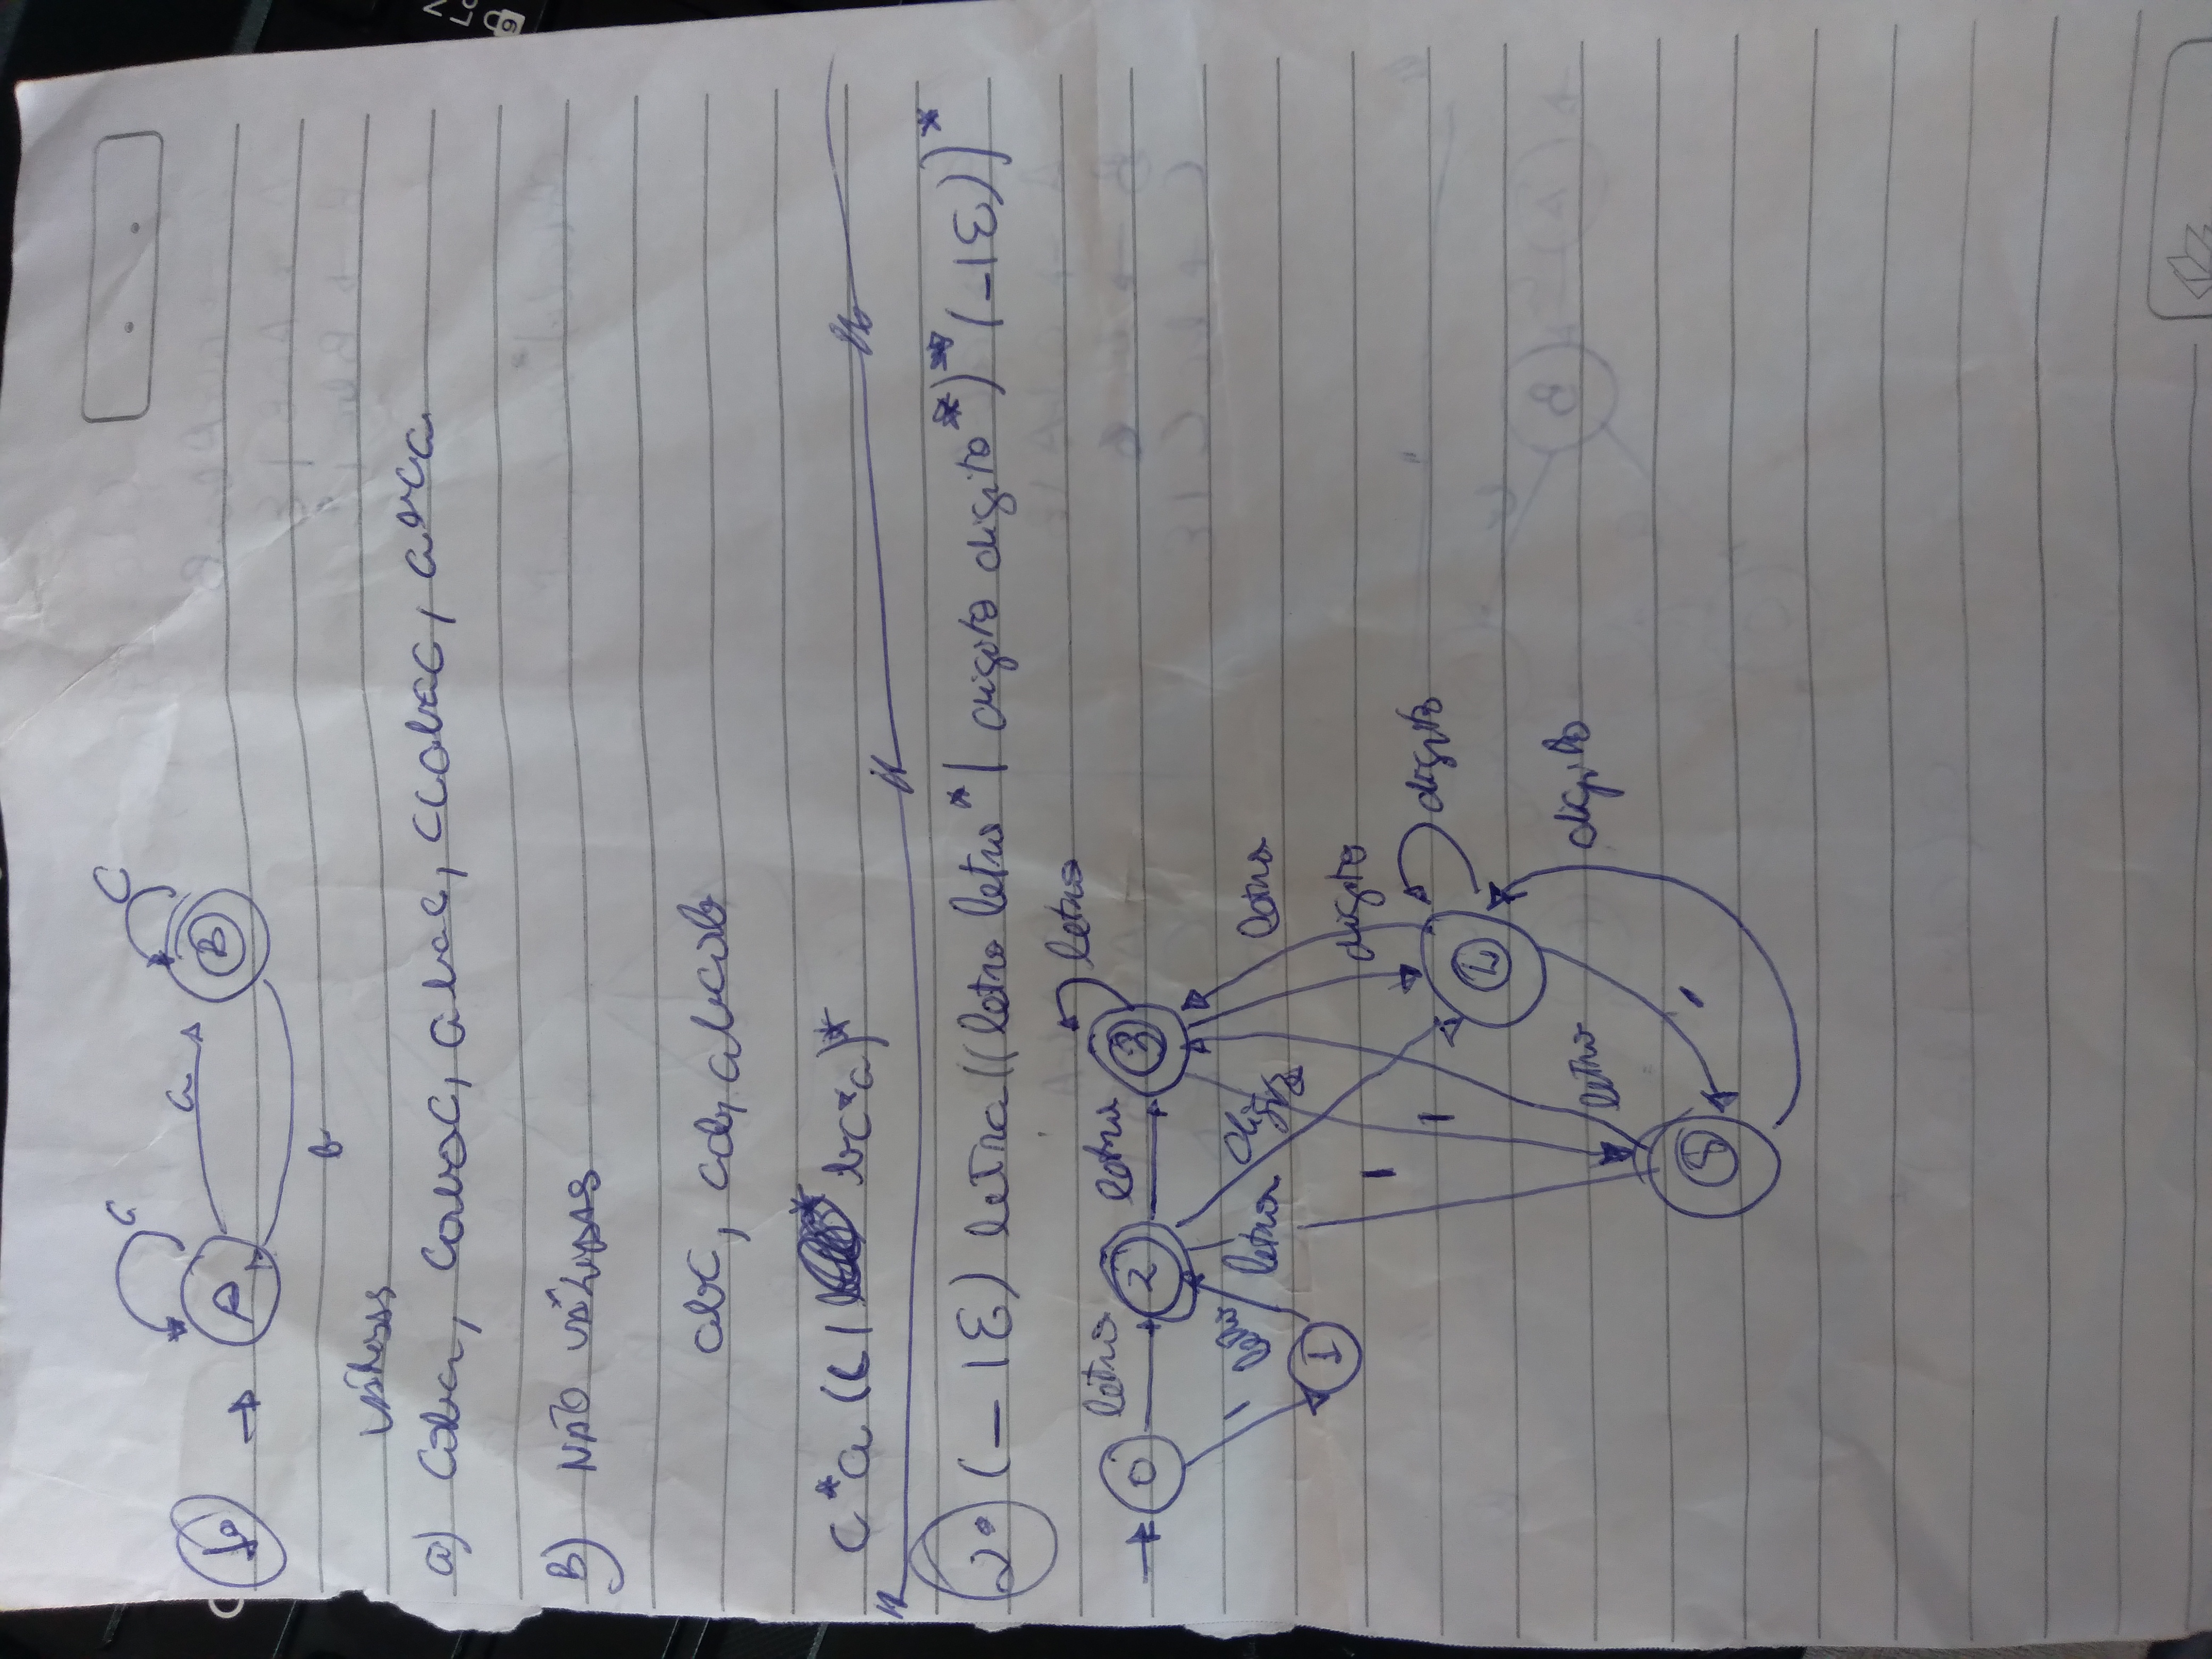 1º → A B
c a c
b
VÁLIDAS
a) caba, cabac, abac, ccabac, abca
B) NÃO VÁLIDAS
abc, cab, abcab
c*a (c| bc*a)*
2º (-|ε) letra((letra letra*| digito digito*)* (-|ε))*
letra letra letra
→ 0 2 3
letra letra digito letra
1
digito
digito
4
letra digito
5